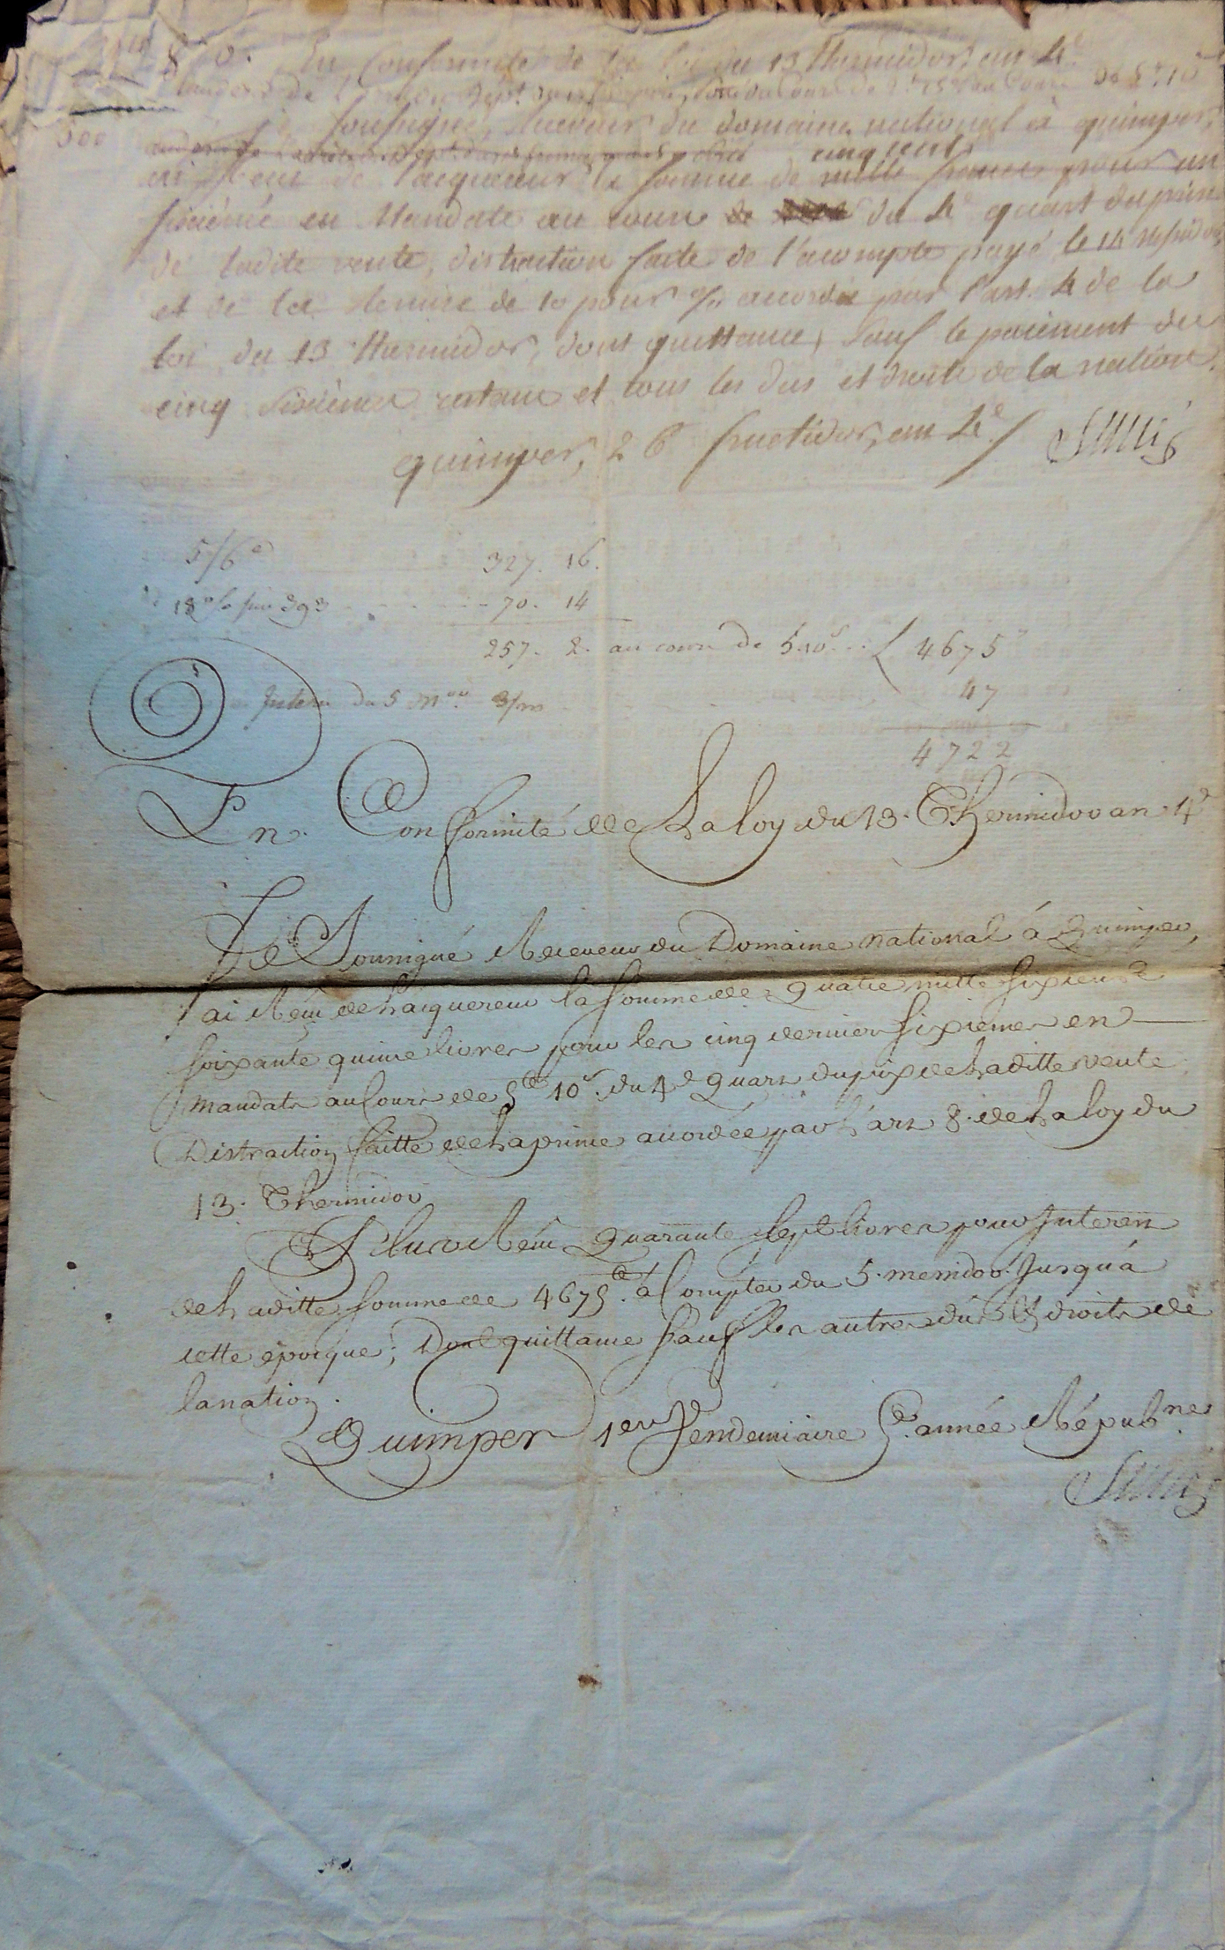 En Conformité de la loi du 13 Thermidor, an 4e
soussigné, Receveur du domaine national à quimper,
cinq cents
ai reçu de l'acquereur la somme de mille francs pour un
sixième en Mandats au cours de du 4e quart du prix
de ladite vente, distraction faite de l'acompte payé le 14
et de la remise de 10 pour % accordée par l'art. 4 de la
loi du 13 Thermidor, dont quittance, sauf le paiement des
cinq sixièmes restans et tous les dus et droits de la nation.
quimper, 26 fructidor, an 4e /
5/6e 327. 16.
18 % sur 393 - - - 70. 14
257. 2. au cours de 5.10s. 4675
Interêt du 5 m 47
4722
En Conformité de La loy du 13. Thermidor an 4e
Je Sousigné Receveur du Domaine National à Quimper,
ai Reçu de Laquereur la somme de Quatre mille sixcent
soixante quinze livres pour les cinq dernier sixiemes en
mandats au Cours de 5lt 10s. du 4e Quart du prix de Laditte vente
Distraction faitte de La prime accordée par L'art 8. de La loy du
13. Thermidor
Plus Reçu Quarante Sept livres pour Interets
de Laditte somme de 4675lt. à Compter du 5. messidor Jusqu'à
cette époque; Dont quittance sauf les autres dus et droits de
la nation.
Quimper 1er Vendemiaire 5e année Répubne